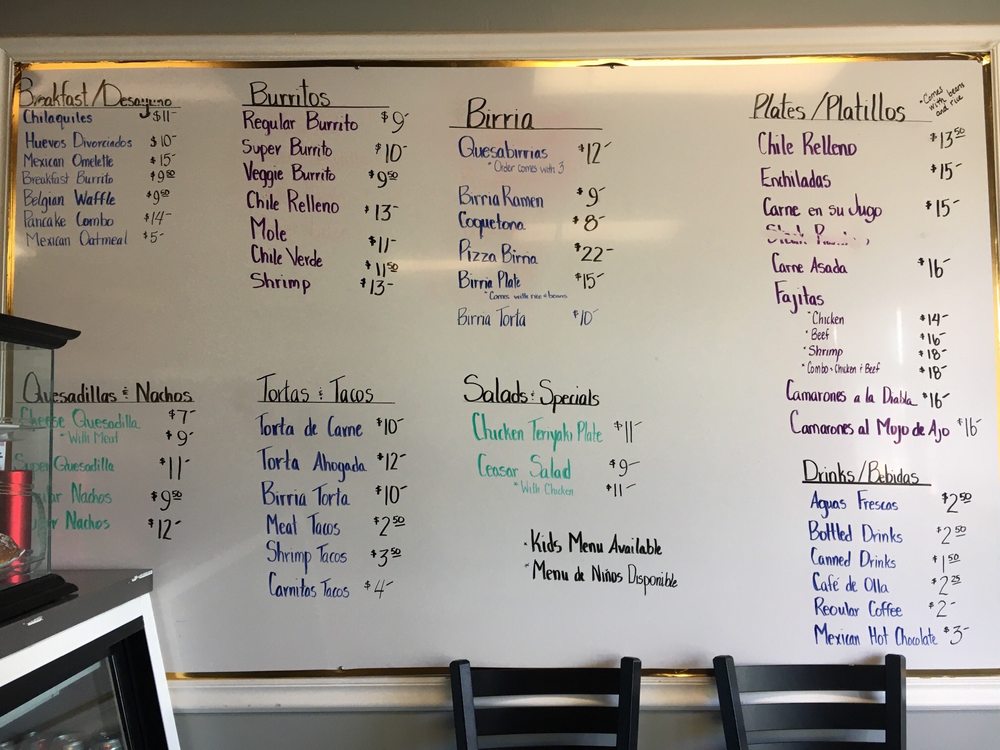 Breakfast/Desayuno
Chilaquiles $11-
Huevos Divorciados $10-
Mexican Omelette $15-
Breakfast Burrito $9.50
Belgian Waffle $9.50
Pancake Combo $14-
Mexican Oatmeal $5-
Burritos
Regular Burrito $9-
Super Burrito $10-
Veggie Burrito $9.50
Chile Relleno $13-
Mole $11-
Chile Verde $11.50
Shrimp $13-
Birria
Quesabirrias $12-
*Order comes with 3
Birria Ramen $9-
Coquetona $8-
Pizza Birria $22-
Birria Plate $15-
*Comes with rice & beans
Birria Torta $10-
Plates/Platillos
*Comes
with beans
and rice
Chile Relleno $13.50
Enchiladas $15-
Carne en su Jugo $15-
Steak
Carne Asada $16-
Fajitas
*Chicken $14-
*Beef $16-
*Shrimp $18-
*Combo-Chicken & Beef $18-
Camarones a la Diabla $16-
Camarones al Mojo de Ajo $16-
Quesadillas & Nachos
Cheese Quesadilla $7-
*With Meat $9-
Super Quesadilla $11-
Nachos $9.50
Nachos $12-
Tortas & Tacos
Torta de Carne $10-
Torta Ahogada $12-
Birria Torta $10-
Meat Tacos $2.50
Shrimp Tacos $3.50
Carnitas Tacos $4-
Salads & Specials
Chicken Teriyaki Plate $11-
Ceasar Salad $9-
*With Chicken $11-
*Kids Menu Available
*Menu de Niños Disponible
Drinks/Bebidas
Aguas Frescas $2.50
Bottled Drinks $2.50
Canned Drinks $1.50
Café de Olla $2.25
Regular Coffee $2-
Mexican Hot Chocolate $3-